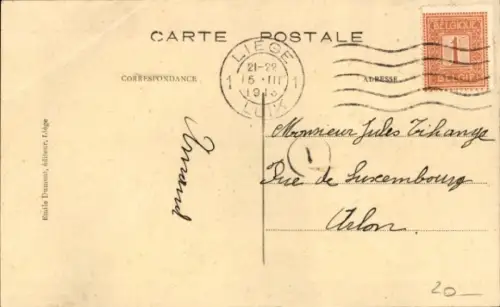 CARTE POSTALE
CORRESPONDANCE
ADRESSE
LIEGE
1 21-22 1
15 III
LUIK
BELGIQUE
1
BELGIË
Armand
Monsieur Jules
1
Rue de Luxembourg
Arlon
Emile Dumont, éditeur, Liége
20—